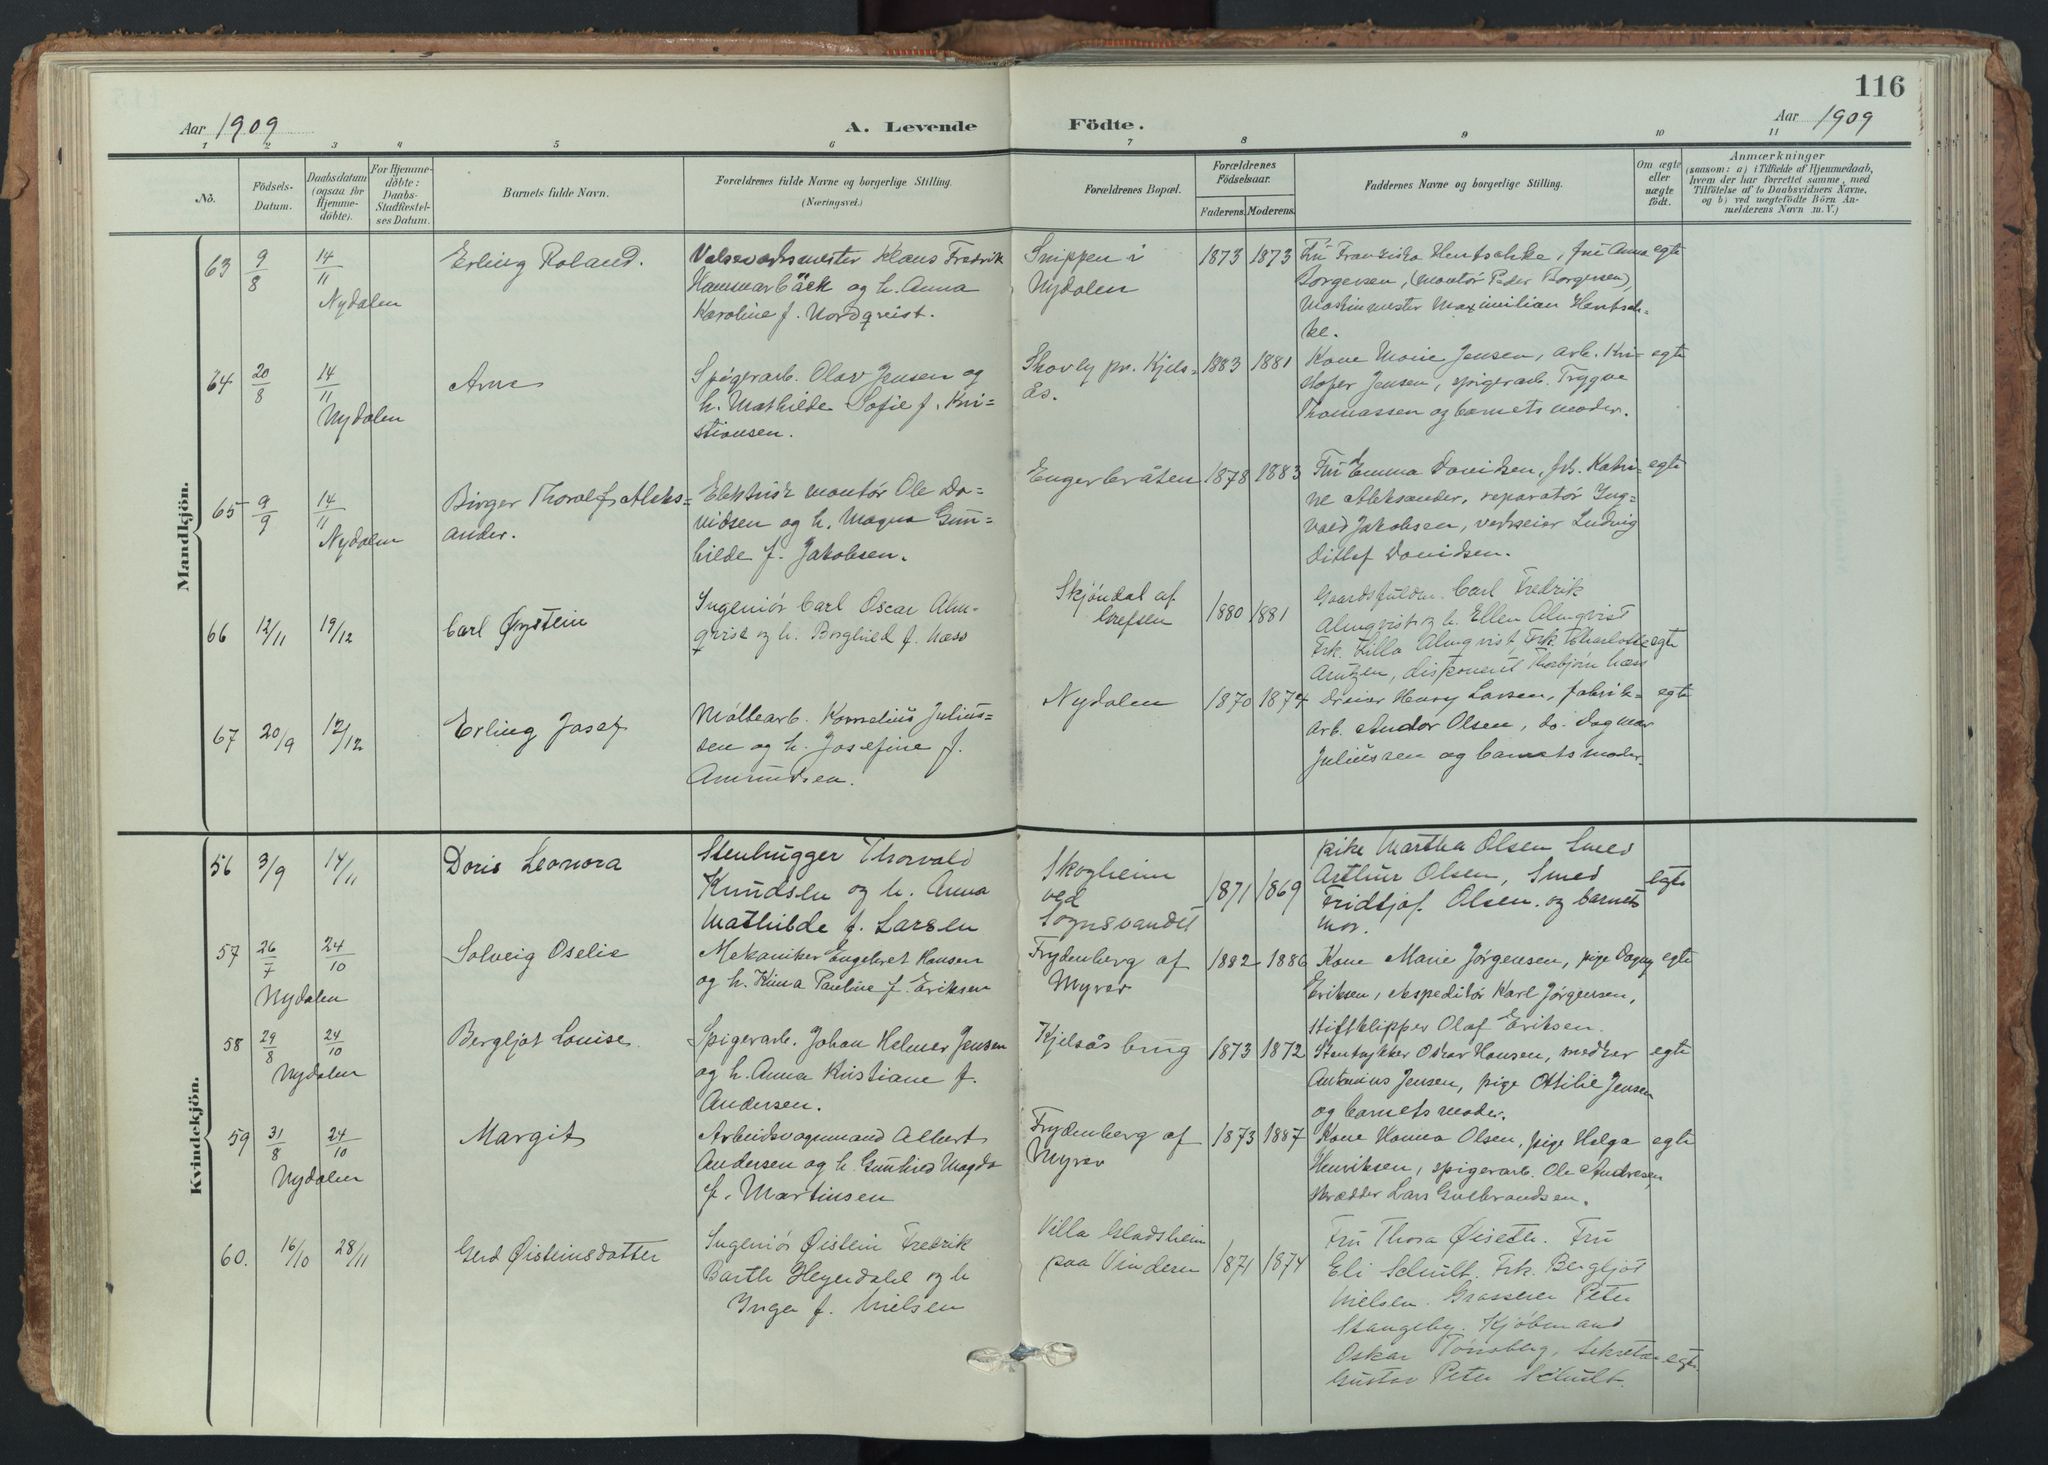 116
Aar 1909
A. Levende Födte.
Aar 1909
1 2 3 4 5 6 7 8 9 10 11
No.
Födsels-
Datum.
Daabsdatum
(ogsaa for
Hjemme-
döbte).
For Hjemme-
döbte:
Daabs-
Stadfæstel-
ses Datum.
Barnets fulde Navn.
Forældrenes fulde Navne og borgerlige Stilling.
(Næringsvei.)
Forældrenes Bopæl.
Forældrenes
Födselsaar.
Faderens. Moderens.
Faddernes Navne og borgerlige Stilling.
Om ægte
eller
uægte
födt.
Anmærkninger
(saasom: a) i Tilfælde af Hjemmedaab,
hvem der har forrettet samme, med
Tilföielse af to Daabsvidners Navne,
og b) ved uægtefödte Börn An-
melderens Navn m. V.)
Mandkjön.
63 9/8 14/11 Nydalen
Erling Roland.
Valseverksmester Klaus Fredrik
Hammarbäck og h. Anna
Karoline f. Nordqvist.
Snippen i
Nydalen
1873 1873
Fru Franziska Hentschke, fru Anna
Borgersen, (montør Peder Borgersen),
Maskinmester Maximilian Hentsch-
ke.
egte
64 20/8 14/11 Nydalen
Arne
Spigerarb. Olav Jensen og
h. Mathilde Sofie f. Kri-
stiansen.
Skovly pr. Kjels-
ås.
1883 1881
Kone Marie Jensen, arb. Kri-
stofer Jensen, spigerarb. Trygve
Thomassen og barnets moder.
egte
65 9/9 14/11 Nydalen
Birger Thoralf Aleks-
ander.
Elektrisk montør Ole Da-
vidsen og h. Magna Gun-
hilde f. Jakobsen.
Engerbråten
1878 1883
Fru Emma Davidsen, frk. Katri-
ne Aleksander, reparatør Ing-
vald Jakobsen, verkseier Ludvig
Ditlef Davidsen.
egte
66 12/11 19/12
Carl Øystein
Ingeniör Carl Oscar Alm-
qvist og h. Borghild f. Næss
Skjöndal af
Grefsen
1880 1881
Gaardsfuldm. Carl Fredrik
Almqvist og h. Ellen Almqvist
Frk. Lilla Almqvist, Frk. Charlotte
Arntzen, disponent Thorbjörn Næss
egte
67 20/9 12/12
Erling Josef
Møllearb. Kornelius Julius-
sen og h. Josefine f.
Amundsen.
Nydalen
1870 1874
Dreier Henry Larsen, fabrik-
arb. Andor Olsen, do. Dagmar
Juliussen og barnets moder.
egte
Kvindekjön.
56 3/9 14/11
Doris Leonora
Stenhugger Thorvald
Knudsen og h. Anna
Mathilde f. Larsen
Skogheim
ved
Sognsvandet
1871 1869
pike Martha Olsen Smed
Arthur Olsen, Smed
Fridtjof Olsen. og barnets
mor.
egte
57 26/7 24/10 Nydalen
Solveig Oselie
Mekaniker Engebret Hansen
og h. Pauline f. Eriksen
Frydenberg af
Myrer
1882 1886
Kone Marie Jørgensen, pige Dagny
Eriksen, ekspeditör Karl Jørgensen,
Stiftklipper Olaf Eriksen.
egte
58 29/8 24/10 Nydalen
Bergljot Louise.
Spigerarb. Johan Helmer Jensen
og h. Anna Kristiane f.
Andersen.
Kjelsås brug
1873 1872
Stentrykker Oskar Hansen, snedker
Antonius Jensen, pige Ottilie Jensen
og barnets moder.
egte
59 31/8 24/10 Nydalen
Margit
Arbeidsvognmand Albert
Andersen og h. Gunhild Magda
f. Martinsen
Frydenberg af
Myrer
1873 1887
Kone Hanna Olsen, pige Helga
Henriksen, spigerarb. Ole Andresen,
skrædder Lars Gulbrandsen.
egte
60. 16/10 28/11
Gerd Øisteinsdatter
Ingeniör Øistein Fredrik
Barth Heyerdahl og h
Inga f. Nielsen
Villa Gladsheim
paa Vinderen
1871 1874
Fru Thora Øiseth. Fru
Eli Schult. Frk. Bergljot
Nielsen. Grosserer Peter
Stangeby. Kjøbmand
Oskar Tønsberg, Sekretær
Gustav Peter Schult.
egte